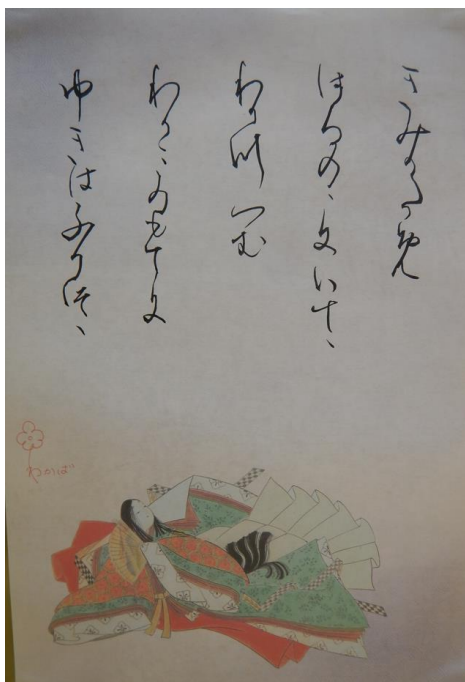 きみかため
はるのゝにいてゝ
わかなつむ
わかころもてに
ゆきはふりつゝ
わかば